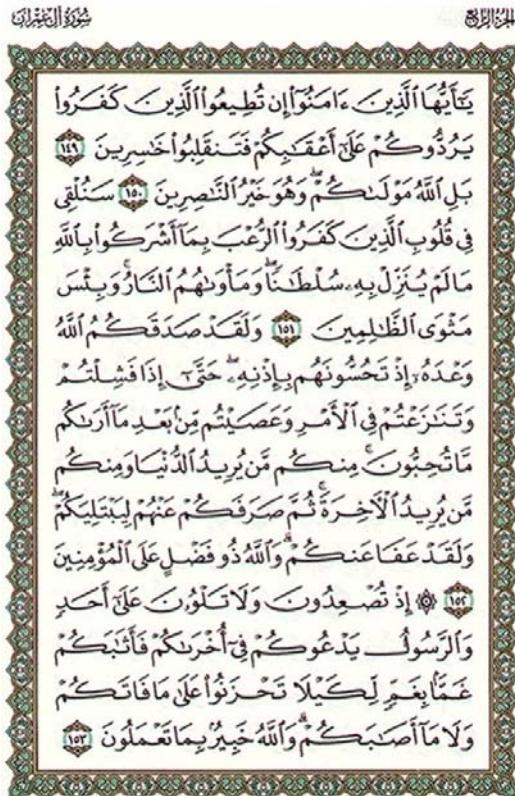 الجزء الرابع
سورة آل عمران
يَٰٓأَيُّهَا ٱلَّذِينَ ءَامَنُوٓا۟ إِن تُطِيعُوا۟ ٱلَّذِينَ كَفَرُوا۟
يَرُدُّوكُمْ عَلَىٰٓ أَعْقَٰبِكُمْ فَتَنقَلِبُوا۟ خَٰسِرِينَ ١٤٩
بَلِ ٱللَّهُ مَوْلَىٰكُمْ ۖ وَهُوَ خَيْرُ ٱلنَّٰصِرِينَ ١٥٠ سَنُلْقِى
فِى قُلُوبِ ٱلَّذِينَ كَفَرُوا۟ ٱلرُّعْبَ بِمَآ أَشْرَكُوا۟ بِٱللَّهِ
مَا لَمْ يُنَزِّلْ بِهِۦ سُلْطَٰنًا ۖ وَمَأْوَىٰهُمُ ٱلنَّارُ ۚ وَبِئْسَ
مَثْوَى ٱلظَّٰلِمِينَ ١٥١ وَلَقَدْ صَدَقَكُمُ ٱللَّهُ
وَعْدَهُۥٓ إِذْ تَحُسُّونَهُم بِإِذْنِهِۦ ۖ حَتَّىٰٓ إِذَا فَشِلْتُمْ
وَتَنَٰزَعْتُمْ فِى ٱلْأَمْرِ وَعَصَيْتُم مِّنۢ بَعْدِ مَآ أَرَىٰكُم
مَّا تُحِبُّونَ ۚ مِنكُم مَّن يُرِيدُ ٱلدُّنْيَا وَمِنكُم
مَّن يُرِيدُ ٱلْءَاخِرَةَ ۚ ثُمَّ صَرَفَكُمْ عَنْهُمْ لِيَبْتَلِيَكُمْ ۖ
وَلَقَدْ عَفَا عَنكُمْ ۗ وَٱللَّهُ ذُو فَضْلٍ عَلَى ٱلْمُؤْمِنِينَ
١٥٢ ۞ إِذْ تُصْعِدُونَ وَلَا تَلْوُۥنَ عَلَىٰٓ أَحَدٍ
وَٱلرَّسُولُ يَدْعُوكُمْ فِىٓ أُخْرَىٰكُمْ فَأَثَٰبَكُمْ
غَمًّۢا بِغَمٍّ لِّكَيْلَا تَحْزَنُوا۟ عَلَىٰ مَا فَاتَكُمْ
وَلَا مَآ أَصَٰبَكُمْ ۗ وَٱللَّهُ خَبِيرٌۢ بِمَا تَعْمَلُونَ ١٥٣